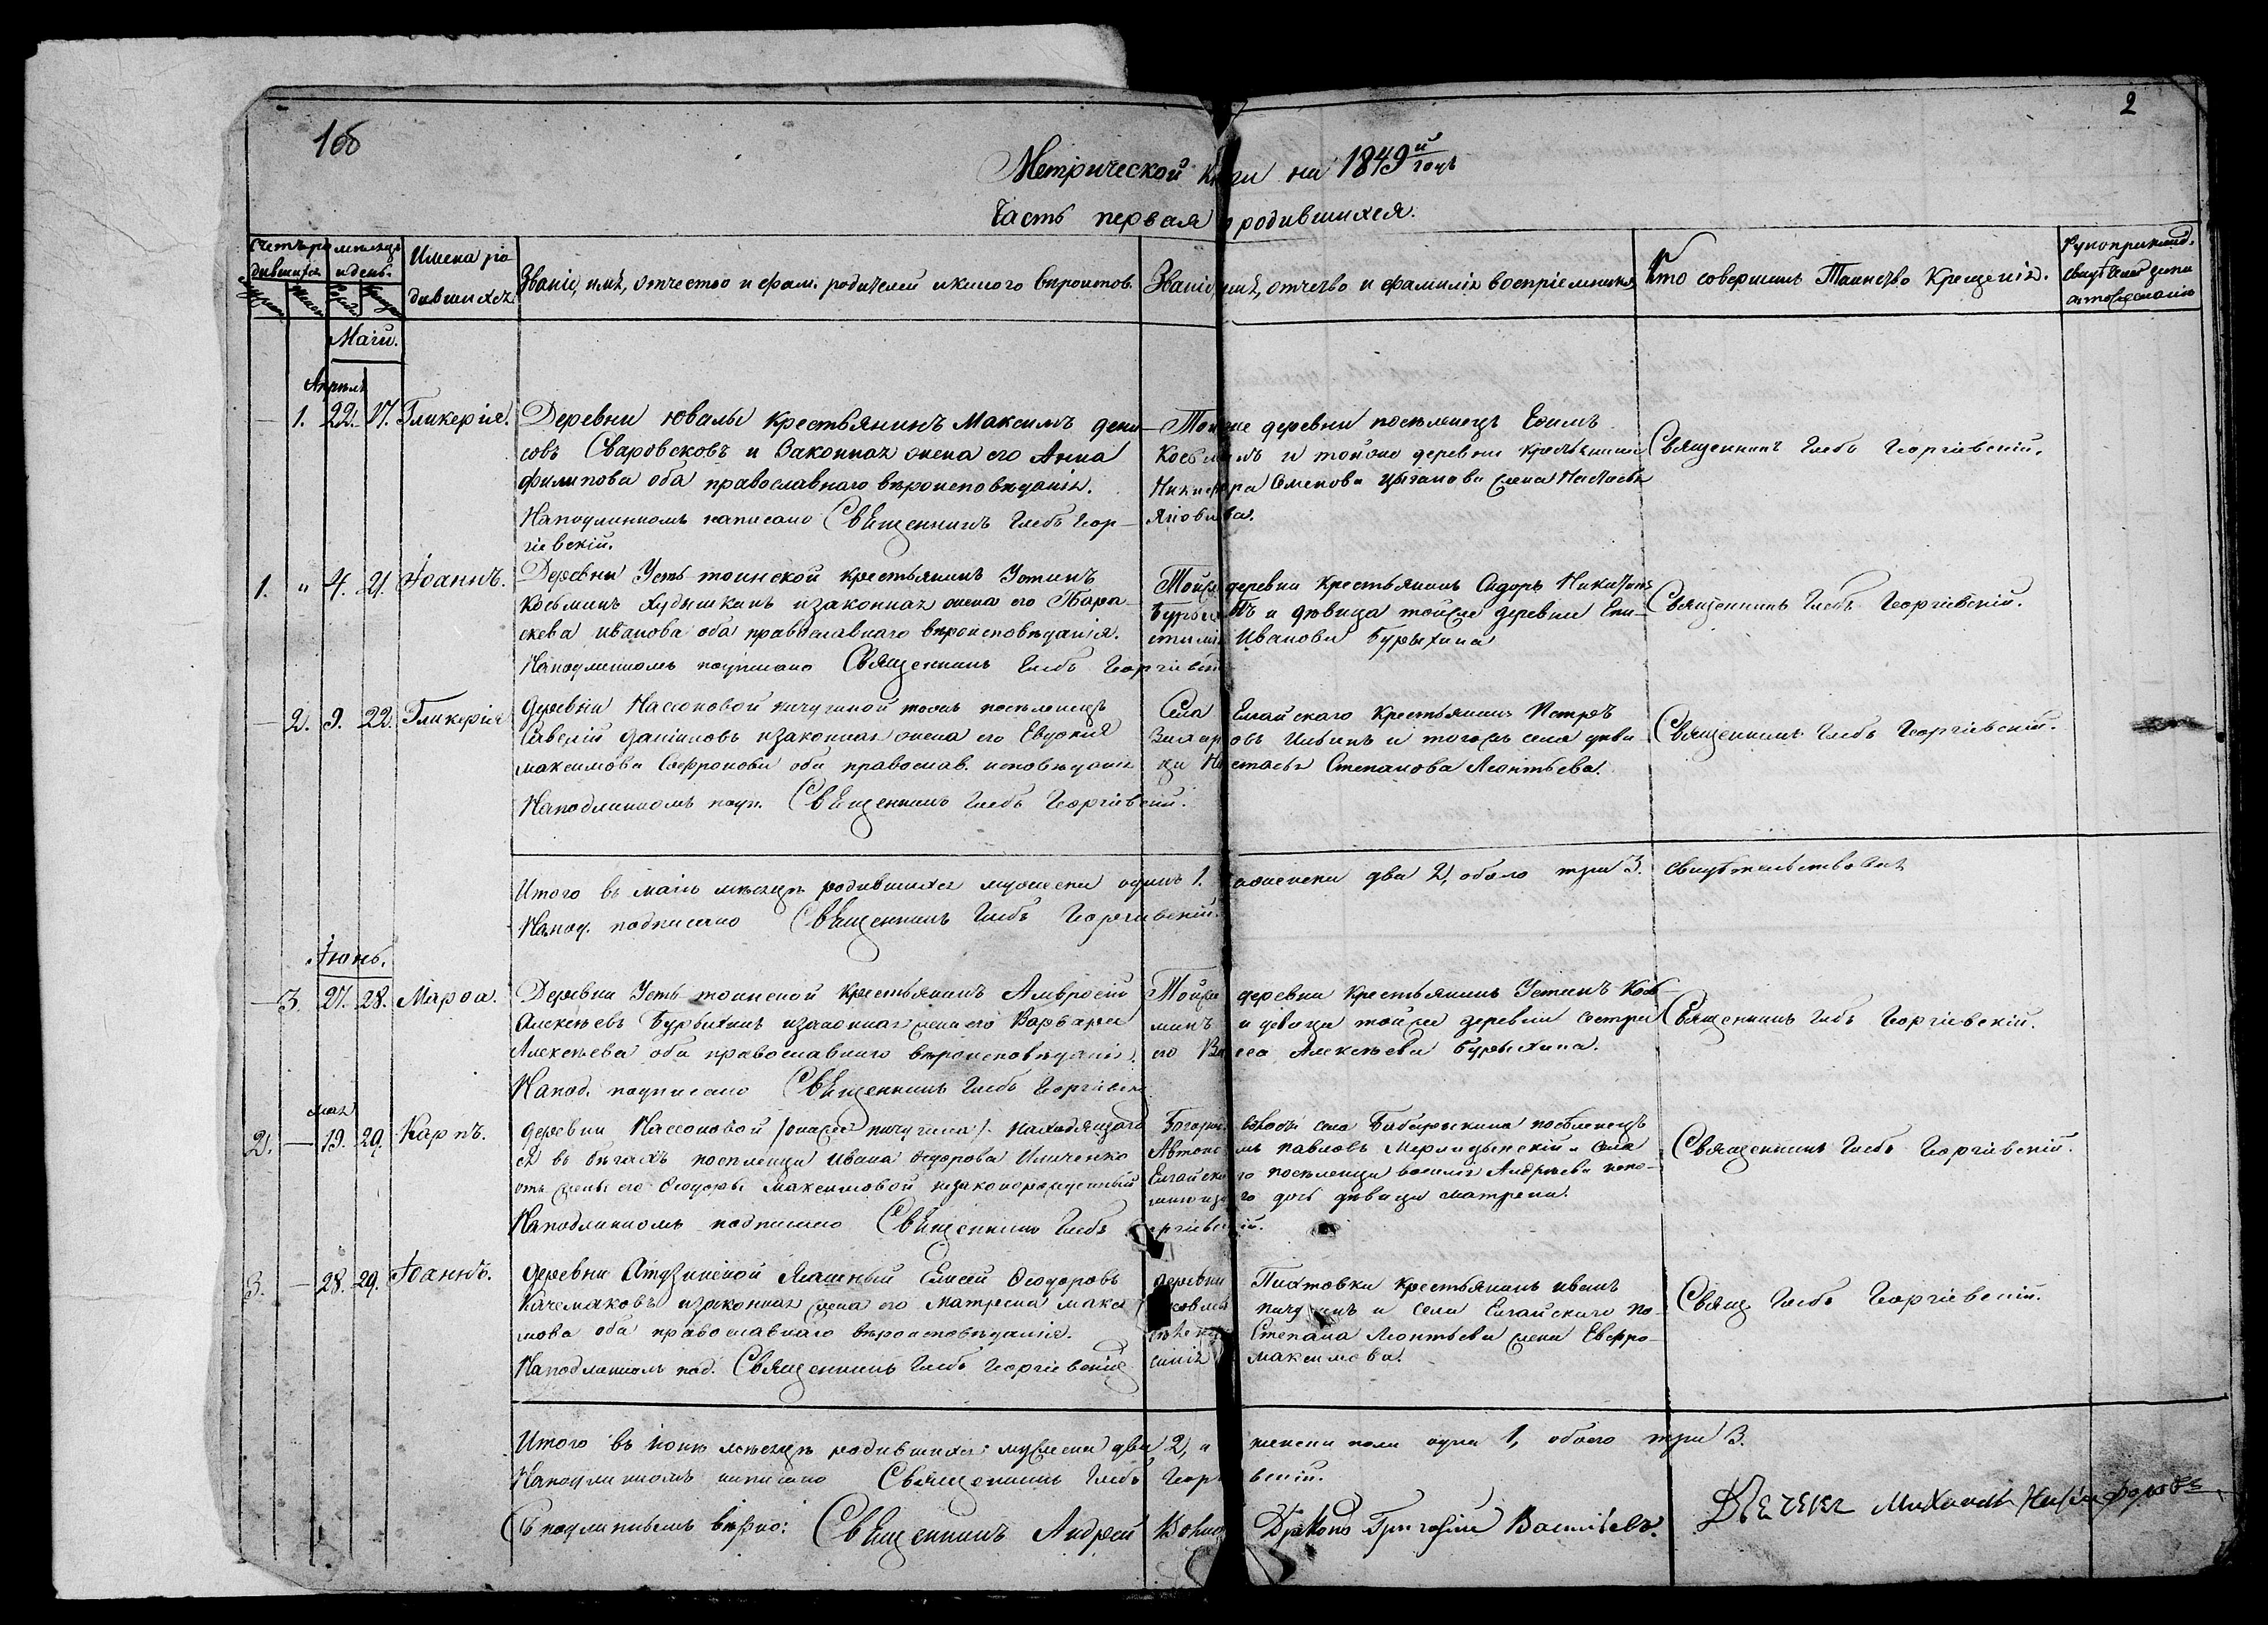 1об
2
Метрической книги на 1849й годъ
Часть первая о родившихся.
Счетъ родившихся
Мѣсяцъ и день.
Имена родившихся.
Званіе, имя, отчество и фам. родителей и какого вѣроисповѣд.
Званіе, имя, отчество и фамилія воспріемников
Кто совершалъ Таинство Крещенія.
Рукоприклад. свидѣтелей записи
Маій.
Апрѣля
— 1. 22. 17. Гликерія.
Деревни Ювалы крестьянинъ Максимъ Дени-
совъ Сваровсковъ и Законная жена его Анна
Филипова оба православнаго вѣроисповѣданія.
Наподлинномъ написано Священникъ Глебъ Геор-
гіевскій.
Тойже деревни поселенецъ Ефимъ
Косьминъ и тойже деревни крестьянина
Никифора Семенова Цыганова жена Настасья
Яковлева.
Священникъ Глебъ Георгіевскій.
1. " 4. 21. Іоаннъ.
Деревни Усть-тоинской крестьянинъ Устинъ
Косьминъ Худышкинъ и законная жена его Пара-
скева Иванова оба православнаго вѣроисповѣданія.
Наподлинномъ подписано Священникъ Глебъ Георгіевскій
Тойже деревни Крестьянинъ Сидоръ
и дѣвица тойже деревни
Иванова Бурыхина
Священникъ Глебъ Георгіевскій.
— 2. 9. 22. Гликерія
Деревни Насоновой пичугиной тожъ поселенецъ
Савелій Даниловъ и законная жена его Евдокия
Максимова Сафронова оба православ. исповѣданія
Наподлинномъ подп. Священникъ Глебъ Георгіевскій.
Села Елгайскаго Крестьянинъ Петръ
Захаровъ Ильинъ и тогожъ села дѣви-
ца Настасья Степанова Леонтьева.
Священникъ Глебъ Георгіевскій.
Итого въ маіѣ мѣсяцѣ родившихся мужеска одинъ 1. а женска два 2, обоего три 3. свидѣтельствовалъ
Напод. подписано Священникъ Глебъ Георгіевскій.
Іюнь.
— 3. 27. 28. Марѳа.
Деревни Усть тоинской крестьянинъ Амвросій
Алексѣевъ Бурыхинъ и законная жена его Варвара
Алексѣева оба православнаго вѣроисповѣданія.
Напод. подписано Священникъ Глебъ Георгіевскій
Тойже деревни крестьянинъ Устинъ Кось-
минъ и девица тойже деревни сестра
его Васса Алексѣева Бурыхина.
Священникъ Глебъ Георгіевскій.
мая
2. — 19. 29. Карпъ.
Деревни Насоновой /онаже пичугина/ находящаго
ся въ бѣгахъ поселенца Ивана Ѳедорова Ильченко
отъ жены его Ѳеодоры Максимовой незаконорожденный
Наподлинномъ подписано Священникъ Глебъ Георгіевскій.
села Бабарыкина поселенецъ
Павловъ и села
Елгайскаго поселенца василья Андреева
дочь дѣвица матрена.
Священникъ Глебъ Георгіевскій.
3. — 28. 29. Іоаннъ.
Деревни Ясашный Елисей Ѳеодоровъ
Качемаковъ и законная жена его Матрена Макси
мова оба православнаго вѣроисповѣданія.
Наподлинномъ под. Священникъ Глебъ Георгіевскій
деревни Пихтовки крестьянинъ иванъ
и села Елгайскаго по-
Степана Леонтьева жена Евфро-
синія Максимова.
Свящ Глебъ Георгіевскій.
Итого въ іюнѣ мѣсяцѣ родившихся: мужеска два 2, а женска пола одна 1, обоего три 3.
Наподлинномъ написано Священникъ Глебъ Георгіевскій.
Съ подлиннымъ вѣрно: Священникъ Андрей Діаконъ Григорій Васильевъ. Дьячекъ Михаилъ Никифоровъ